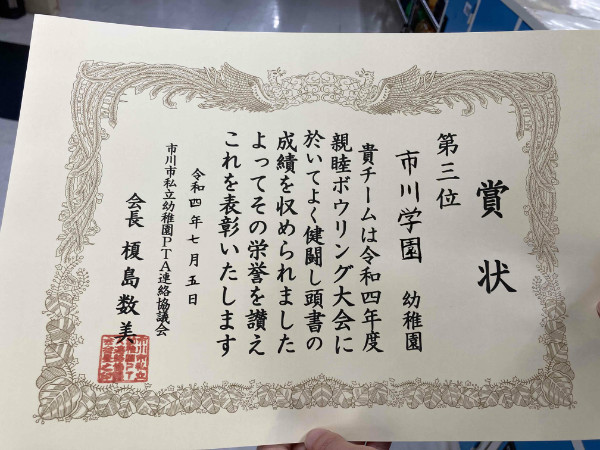 賞状
第三位
市川学園 幼稚園
貴チームは令和四年度
親睦ボウリング大会に
於いてよく健闘し頭書の
成績を収められました
よってその栄誉を讃え
これを表彰いたします
令和四年七月五日
市川市私立幼稚園PTA連絡協議会
会長 榎島数美